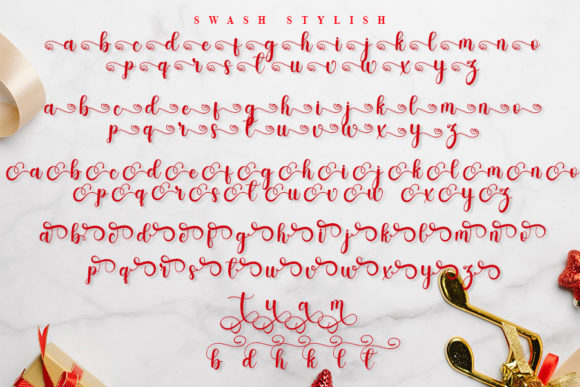 SWASH STYLISH
a b c d e f g h i j k l m n o
p q r s t u v w x y z
a b c d e f g h i j k l m n o
p q r s t u v w x y z
a b c d e f g h i j k l m n o
p q r s t u v w x y z
a b c d e f g h i j k l m n o
p q r s t u v w x y z
t y g m
b d h k l t